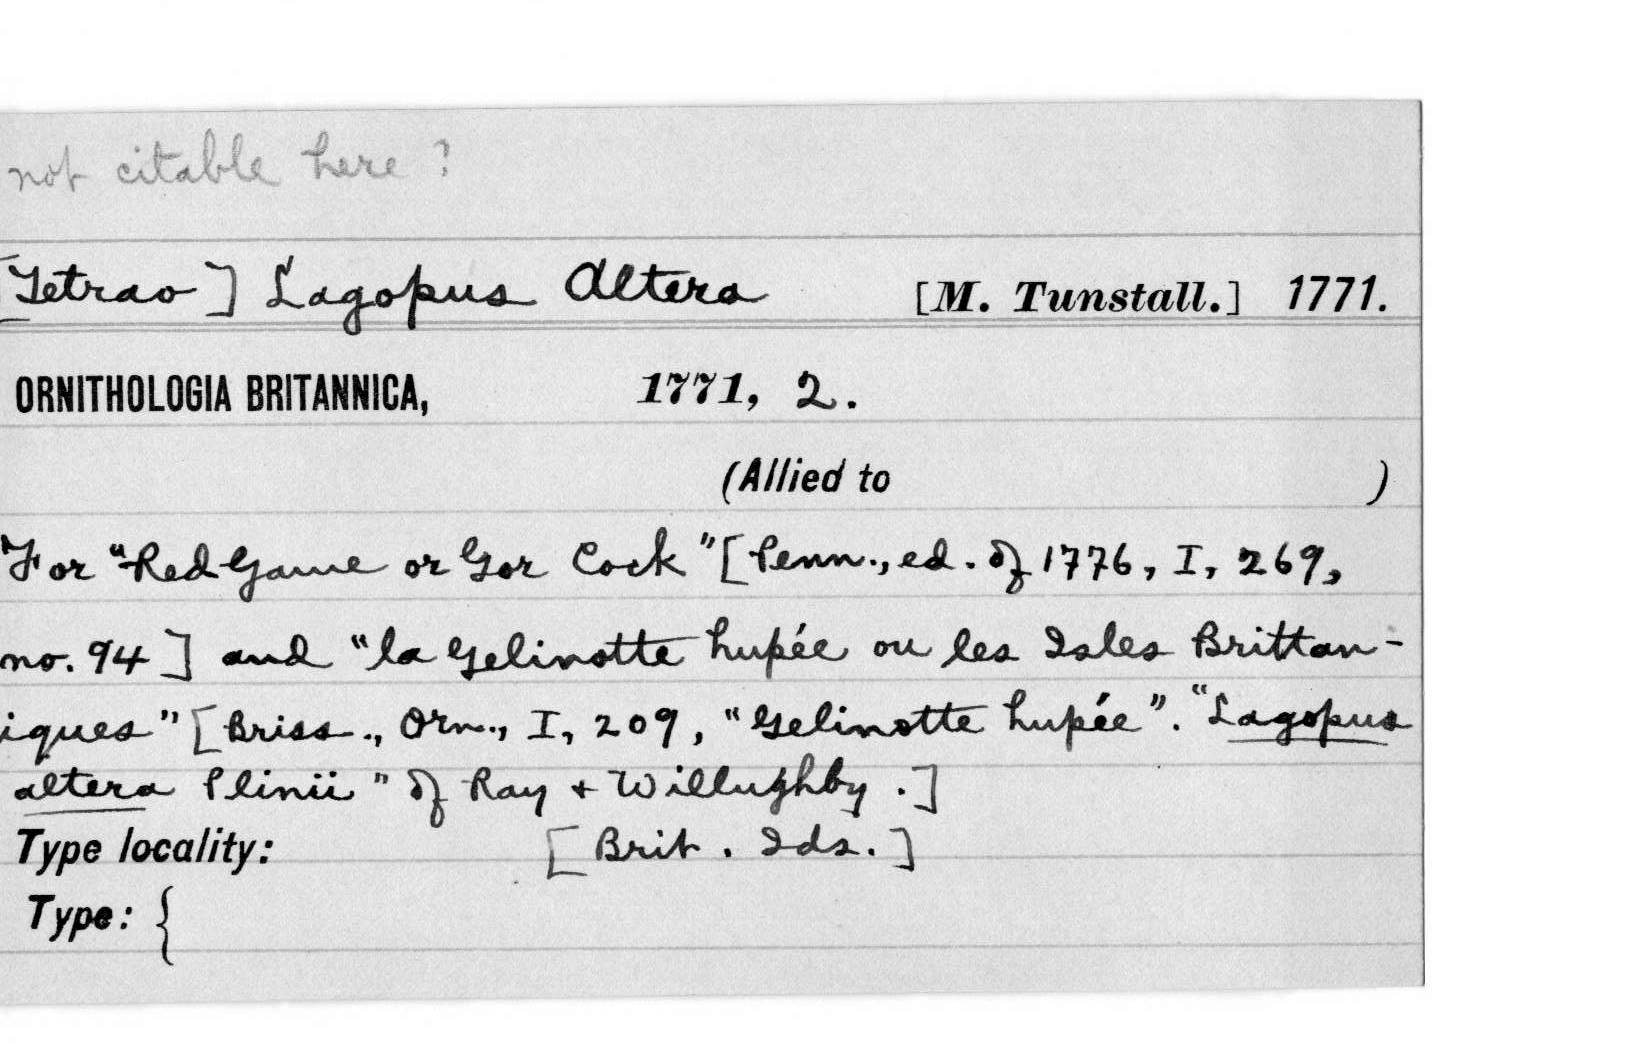 not citable here ?
[Tetrao] Lagopus Altera [M. Tunstall.] 1771.
ORNITHOLOGIA BRITANNICA, 1771, 2.
(Allied to )
For "Red Game or Gor Cock" [Penn., ed. of 1776, I, 269,
no. 94] and "la Gelinotte hupée ou les Isles Brittan-
iques" [Briss., Orn., I, 209, "Gelinotte hupée". "Lagopus
altera Plinii" of Ray + Willughby.]
Type locality: [Brit. Ids.]
Type: {